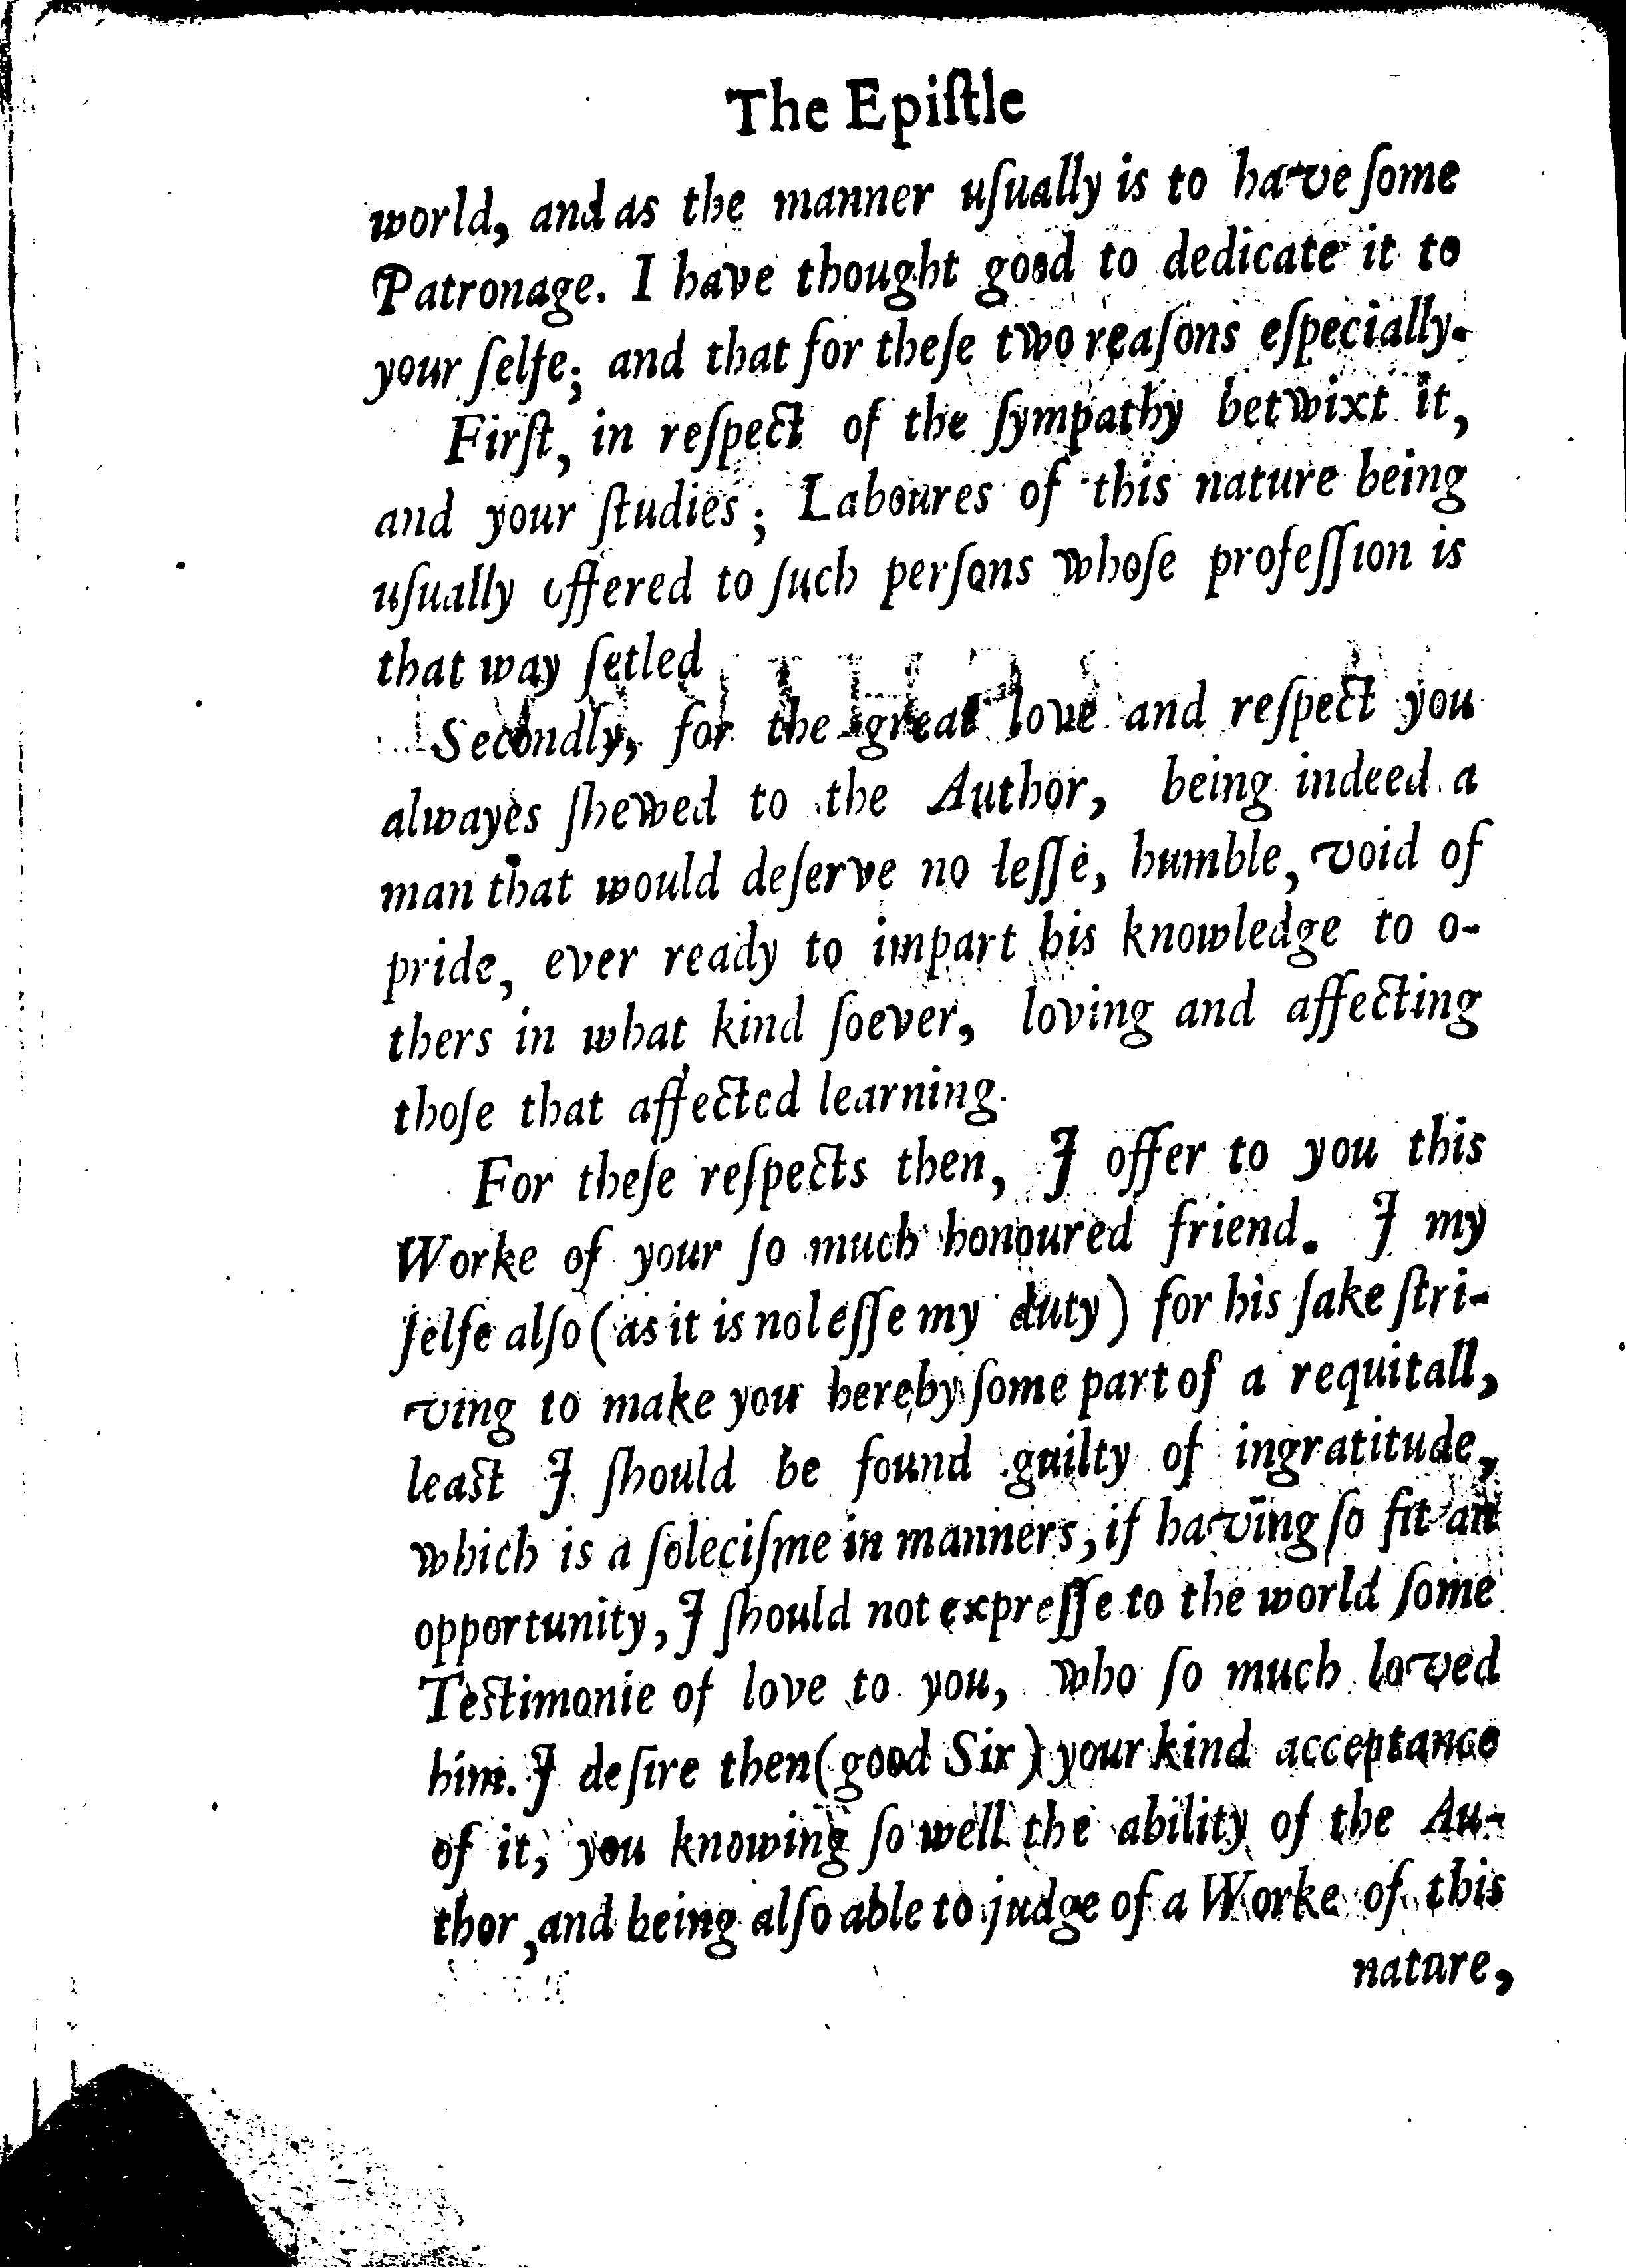 The Epiſtle
world, and as the manner uſually is to have ſome
Patronage. I have thought good to dedicate it to
your ſelfe; and that for theſe two reaſons eſpecially.
Firſt, in reſpect of the ſympathy betwixt it,
and your ſtudies; Laboures of this nature being
uſually offered to ſuch perſons whoſe profeſſion is
that way ſetled
Secondly, for the great love and reſpect you
alwayes ſhewed to the Author, being indeed a
man that would deſerve no leſſe, humble, void of
pride, ever ready to impart his knowledge to o-
thers in what kind ſoever, loving and affecting
thoſe that affected learning.
For theſe reſpects then, I offer to you this
Worke of your ſo much honoured friend. I my
ſelfe alſo (as it is no leſſe my duty) for his ſake ſtri-
ving to make you hereby ſome part of a requitall,
leaſt I ſhould be found guilty of ingratitude,
which is a ſoleciſme in manners, if having ſo fit an
opportunity, I ſhould not expreſſe to the world ſome
Teſtimonie of love to you, who ſo much loved
him. I deſire then (good Sir) your kind acceptance
of it, you knowing ſo well the ability of the Au-
thor, and being alſo able to judge of a Worke of this
nature,